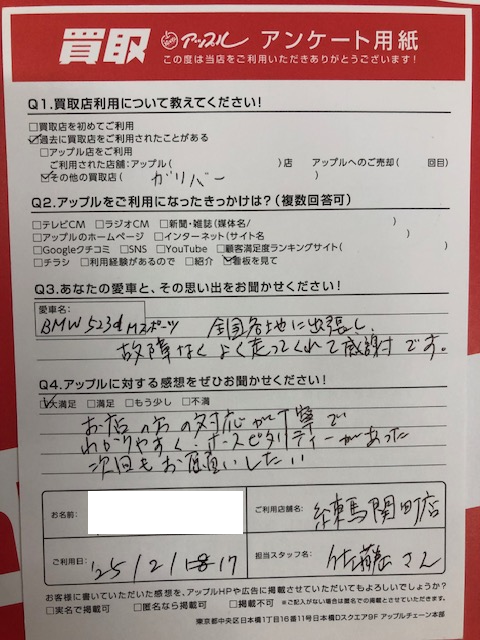 買取 アップル アンケート用紙
この度は当店をご利用いただきありがとうございます!
Q1.買取店利用について教えてください!
□買取店を初めてご利用
☑過去に買取店をご利用されたことがある
□アップル店をご利用
ご利用された店舗:アップル( )店 アップルへのご売却( 回目)
☑その他の買取店( ガリバー )
Q2.アップルをご利用になったきっかけは?(複数回答可)
□テレビCM □ラジオCM □新聞・雑誌(媒体名/ )
□アップルのホームページ □インターネット(サイト名 )
□Googleクチコミ □SNS □YouTube □顧客満足度ランキングサイト( )
□チラシ □利用経験があるので □紹介 ☑看板を見て
Q3.あなたの愛車と、その思い出をお聞かせください!
愛車名:
BMW 523d Mスポーツ 全国各地に出張し、
故障なくよく走ってくれて感謝です。
Q4.アップルに対する感想をぜひお聞かせください!
☑大満足 □満足 □もう少し □不満
お店の方の対応が丁寧で
わかりやすく!ホスピタリティーがあった
次回もお願いしたい
お名前: ご利用店舗名: 練馬関町店
ご利用日: '25/2/17 担当スタッフ名: 佐藤さん
お客様に書いていただいた感想を、アップルHPや広告に掲載させていただいてもよろしいでしょうか?
□実名で掲載可 □匿名なら掲載可 □掲載不可 ※ご記入がない場合は匿名での掲載とさせていただきます。
東京都中央区日本橋1丁目16番11号日本橋Dスクエア9F アップルチェーン本部